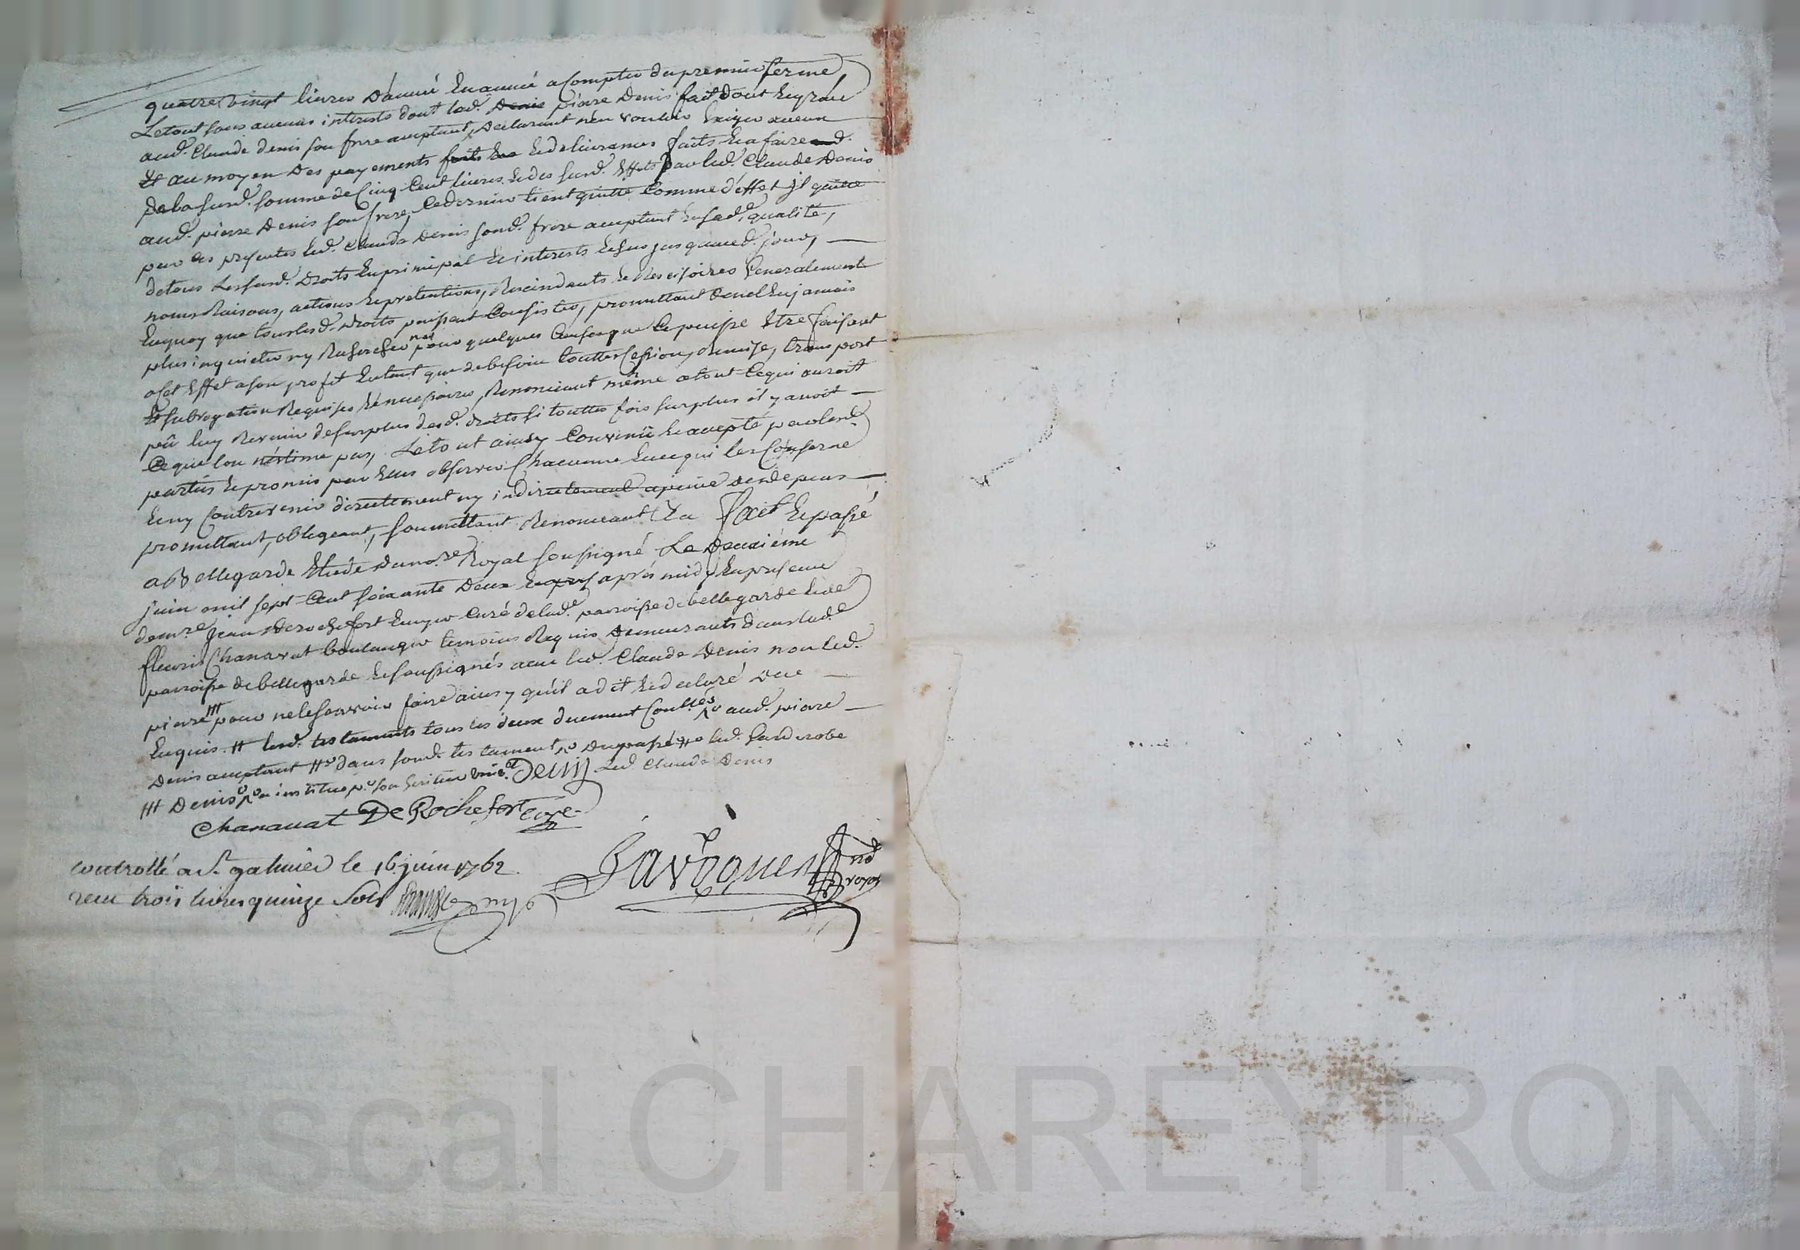 quatre vingt livres d'année en année a compter du premier terme
Le tout sans aucuns interests dont led. pierre Denis fait dont ...
aud. Claude denis son frere acceptant, declarant n'en vouloir Exiger aucun
Et au moyen des payements Et delivrances faits Et a faire
De la susd. somme de Cinq Cent livres Et des susd. Effets par led. Claude Denis
aud. pierre Denis son frere, Ce dernier tient quitte Comme d'effet jl quitte
par ces presentes led. Claude Denis sond. frere acceptant En sad. qualité,
de tous Les susd. Droits En principal Et interests Echus jusqu'aud. jour,
noms Raisons, actions Et pretentions, Rescindants Et Rescisoires Generalement
En quoy que tous lesd. droits puissent Consister, promettant de ne l'En jamais
plus inquieter ny Rechercher pour quelques Causes que Ce puisse Etre faisant
a Cet Effet a son profit En tant que de besoin toutte Cession, demise, transport
Et subrogation Requises Et necessaires, Renonciant même a tout Ce qui auroit
pû luy Revenir de surplus desd. droits si touttes fois surplus il y avoit
Ce que l'on n'estime pas, Le tout ainsy Convenû Et accepté par lesd.
parties Et promis par Elles observer Chacunne En ce qui les Conserne
Et ny Contrevenir directement ny indirectement a peine de despens
promettant, obligeant, soumettant Renonceant &a fait Et passé
a Bellegarde Etude du no.re Royal soussigné Le Deuxiéme
juin mil sept Cent soixante Deux après midy En presence
de m.re Jean De rochefort Ecuyer Curé de lad. parroisse de bellegarde Et de
fleuris Chanavat boulanger temoins Requis Demeurants dans lad.
parroisse de bellegarde Et soussignés avec led. Claude Denis non led.
pierre pour ne le sçavoir faire ainsy qu'il a dit Et declaré De ce
Enquis # lesd. testaments tous les deux duement Con.lles aud. pierre
Denis acceptant dans sond. testament led. Garderobe
Denis institué p.r son heritier univ.el Denis Led. Claude Denis
Chanauat De Rochefort curé
controllé a S.t galmier le 16 juin 1762
recu trois livres quinze sols
n.re royal
Pascal CHAREYRON